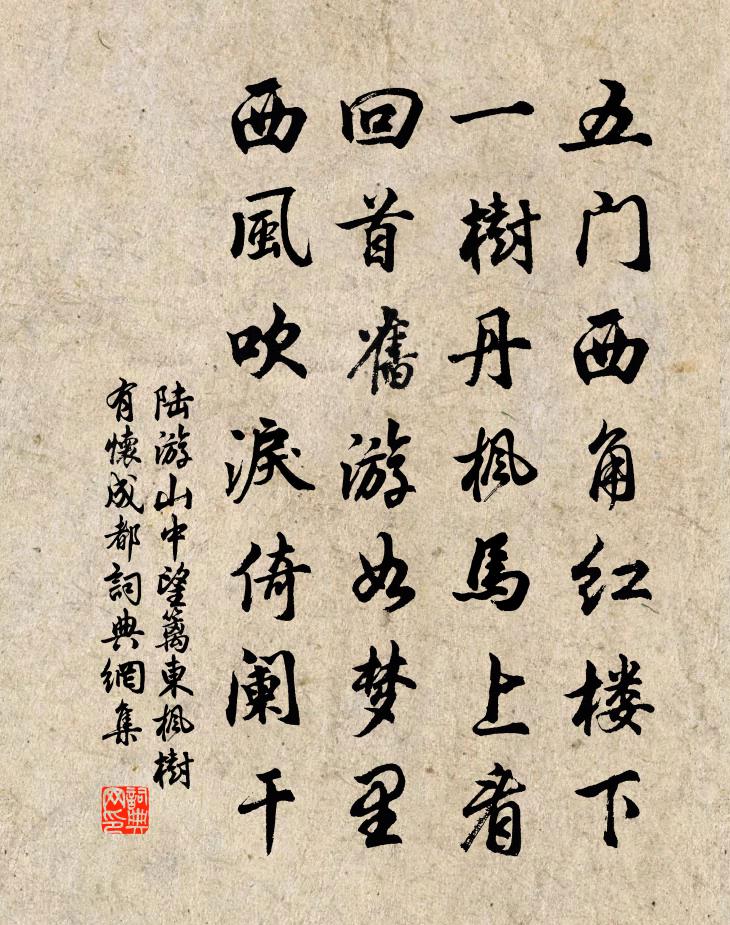 五门西角红楼下
一樹丹楓馬上看
回首舊游如梦里
西風吹淚倚阑干
陆游山中望篱東楓樹
有懷成都詞典網集
詞典网印